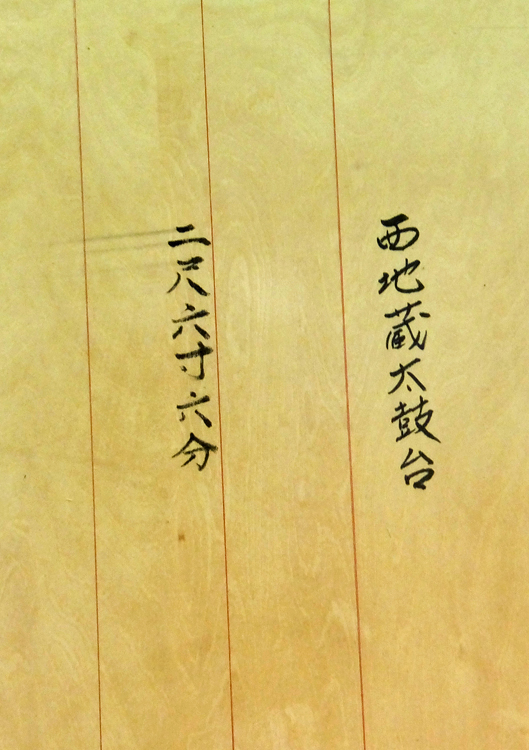 西地蔵太鼓台
二尺六寸六分